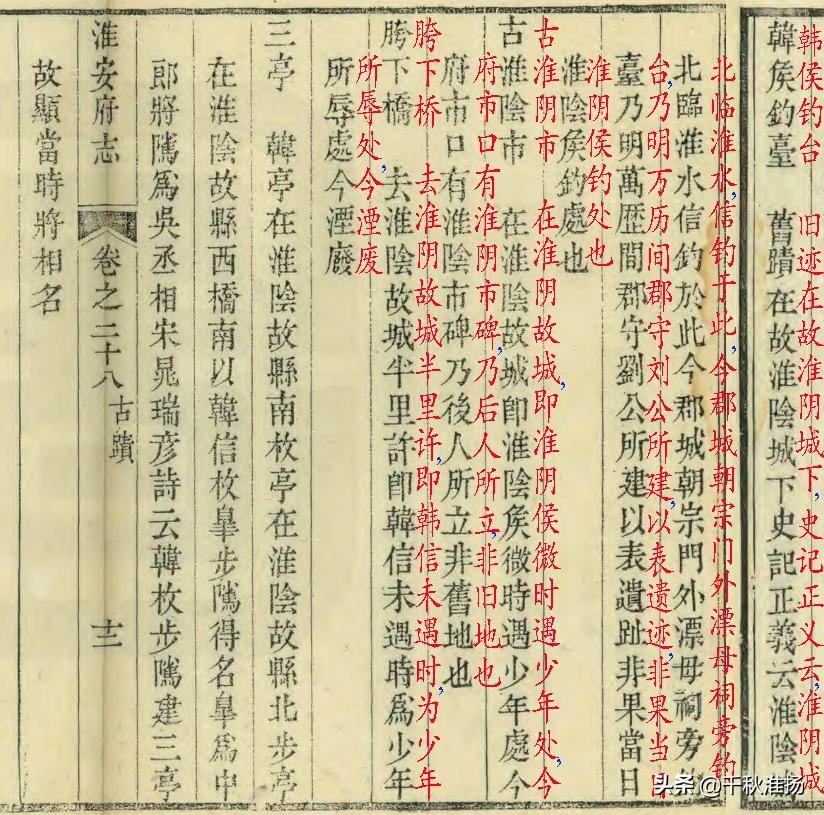 韩侯钓台 旧迹在故淮阴城下,史记正义云,淮阴城
韓矦釣臺 舊蹟在故淮陰城下史記正義云淮陰
北临淮水,信钓于此,今郡城朝宗门外漂母祠旁钓
北臨淮水信釣於此今郡城朝宗門外漂母祠旁
台,乃明万历间郡守刘公所建,以表遗迹,非果当
臺乃明萬歷間郡守劉公所建以表遺趾非果當日
淮阴侯钓处也
淮陰矦釣處也
古淮阴市 在淮阴故城,即淮阴侯微时遇少年处,今
古淮陰市 在淮陰故城卽淮陰矦微時遇少年處今
府市口有淮阴市碑,乃后人所立,非旧地也
府市口有淮陰市碑乃後人所立非舊地也
胯下桥 去淮阴故城半里许,即韩信未遇时,为少年
胯下橋 去淮陰故城半里許卽韓信未遇時爲少年
所辱处,今湮废
所辱處今湮廢
三亭 韓亭在淮陰故縣南枚亭在淮陰故縣北步亭
在淮陰故縣西橋南以韓信枚臯步隲得名臯爲中
郎將隲爲吳丞相宋晁瑞彦詩云韓枚步隲建三亭
淮安府志 卷之二十八 古蹟 十二
故顯當時將相名
头条 @千秋淮扬